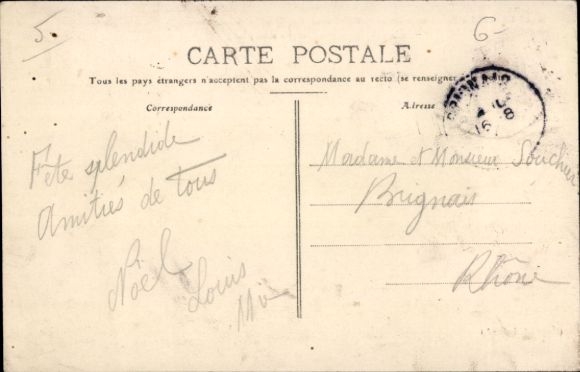 5
6-
CARTE POSTALE
Tous les pays étrangers n'acceptent pas la correspondance au recto (se renseigner
Correspondance
Adresse
16 8
Fête splendide
Amitiés de tous
Noël
Louis
Madame et Monsieur Souchier
Brignais
Rhône